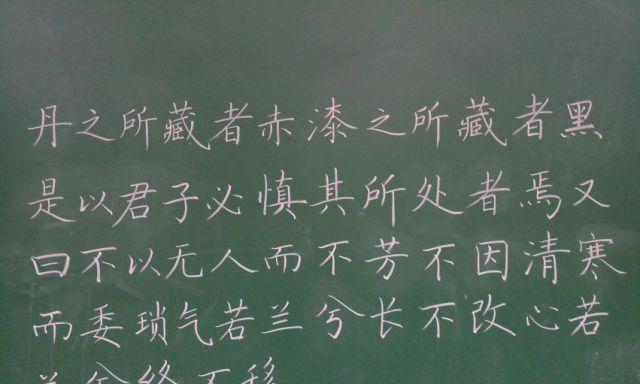 丹之所藏者赤漆之所藏者黑
是以君子必慎其所处者焉又
曰不以无人而不芳不因清寒
而委琐气若兰兮长不改心若
兰兮终不移